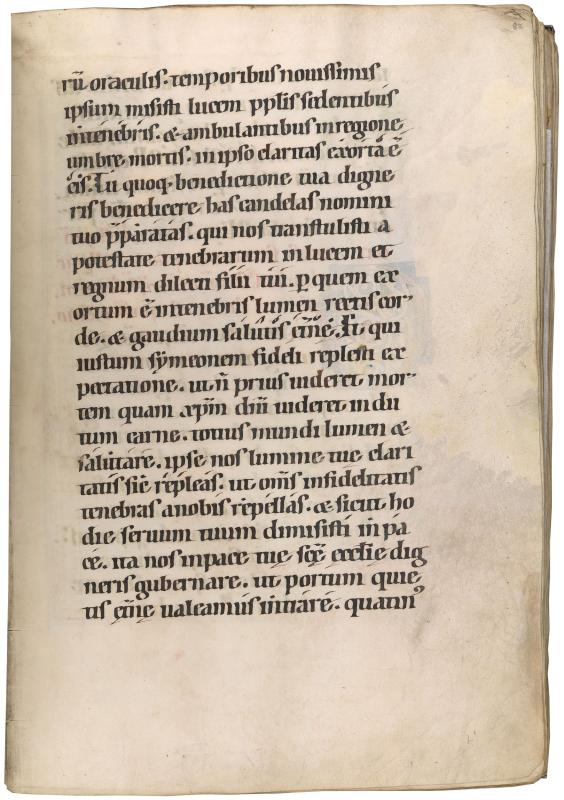 rū oraculis. temporibus nouissimis
ipsum misisti lucem pplis sedentibus
in tenebris. & ambulantibus in regione
umbre mortis. in ipso claritas exorta ē
eis. Tu quoq; benedictione tua digne
ris benedicere has candelas nomini
tuo p̄paratas. qui nos transtulisti a
potestate tenebrarum in lucem et
regnum dilecti filii tui. ꝑ quem ex
ortum ē in tenebris lumen rectis cor-
de. & gaudium salutis et̄ne. Et qui
iustum symeonem fideli replesti ex
pectatione. ut n̄ prius uideret mor-
tem quam xp̄m dn̄i uideret indu
tum carne. totius mundi lumen &
salutare. ipse nos lumine tue clari
tatis sic repleas. ut om̄s infidelitatis
tenebras a nobis repellas. & sicut ho
die seruum tuum dimisisti in pa
ce. ita nos in pace tue sc̄e eccl̄ie dig
neris gubernare. ut portum quie
tis et̄ne ualeamus intrare. quatinꝰ